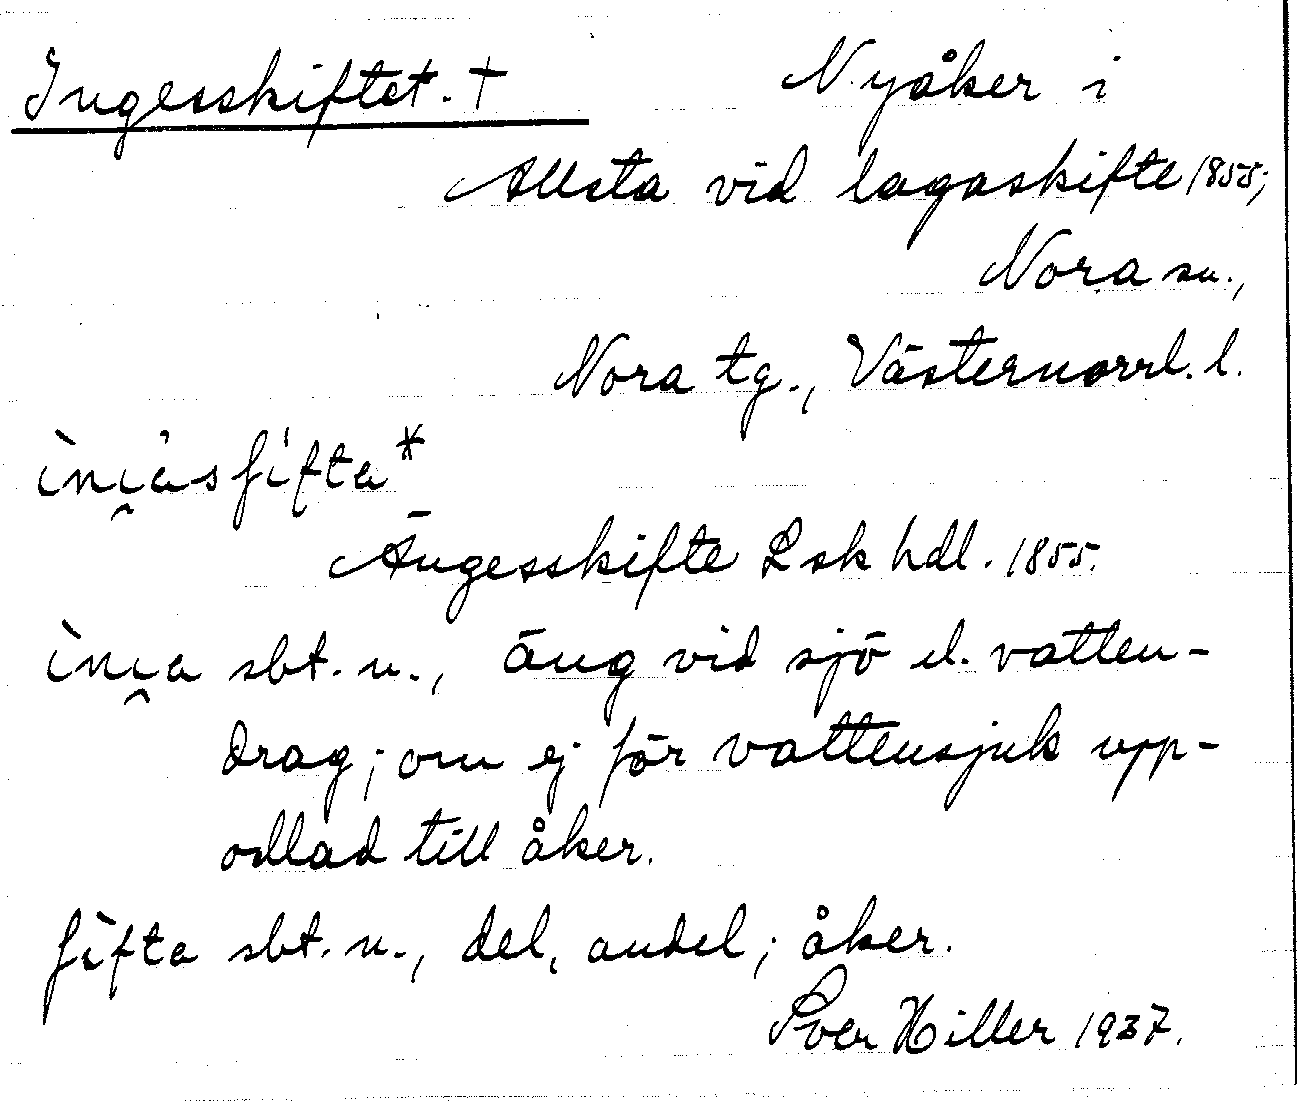 Ingesskiftet. †
Nyåker i
Allsta vid lagaskifte 1855;
Nora sn.,
Nora tg., Västernorrl. l.
ìni̯a̍sʃi̍fta*
Ängesskifte Lsk hdl. 1855.
ìni̯a sbt. n., äng vid sjö el. vatten-
drag; om ej för vattensjuk upp-
odlad till åker.
ʃìfta sbt. n., del, andel; åker.
Hiller 1937.